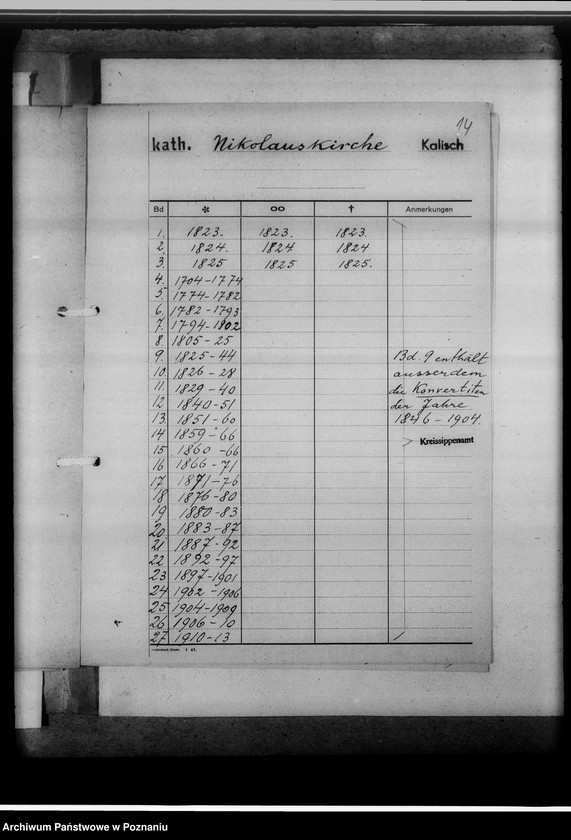 14
kath. Nikolauskirche Kalisch
Bd * ∞ † Anmerkungen
1. 1823. 1823. 1823.
2 1824. 1824 1824
3. 1825 1825 1825.
4. 1704-1774
5. 1774-1782
6. 1782-1793
7. 1794-1802
8. 1805-25
9. 1825-44 Bd. 9 enthält
10. 1826-28 ausserdem
11. 1829-40 die Konvertiten
12 1840-51 der Jahre
13. 1851-60 1846-1904.
14 1859-66 Kreissippenamt
15 1860-66
16 1866-71
17 1871-76
18 1876-80
19 1880-83
20. 1883-87
21 1887-92
22 1892-97
23 1897-1901
24 1902-1906
25 1904-1909
26 1906-10
27 1910-13
Archiwum Państwowe w Poznaniu